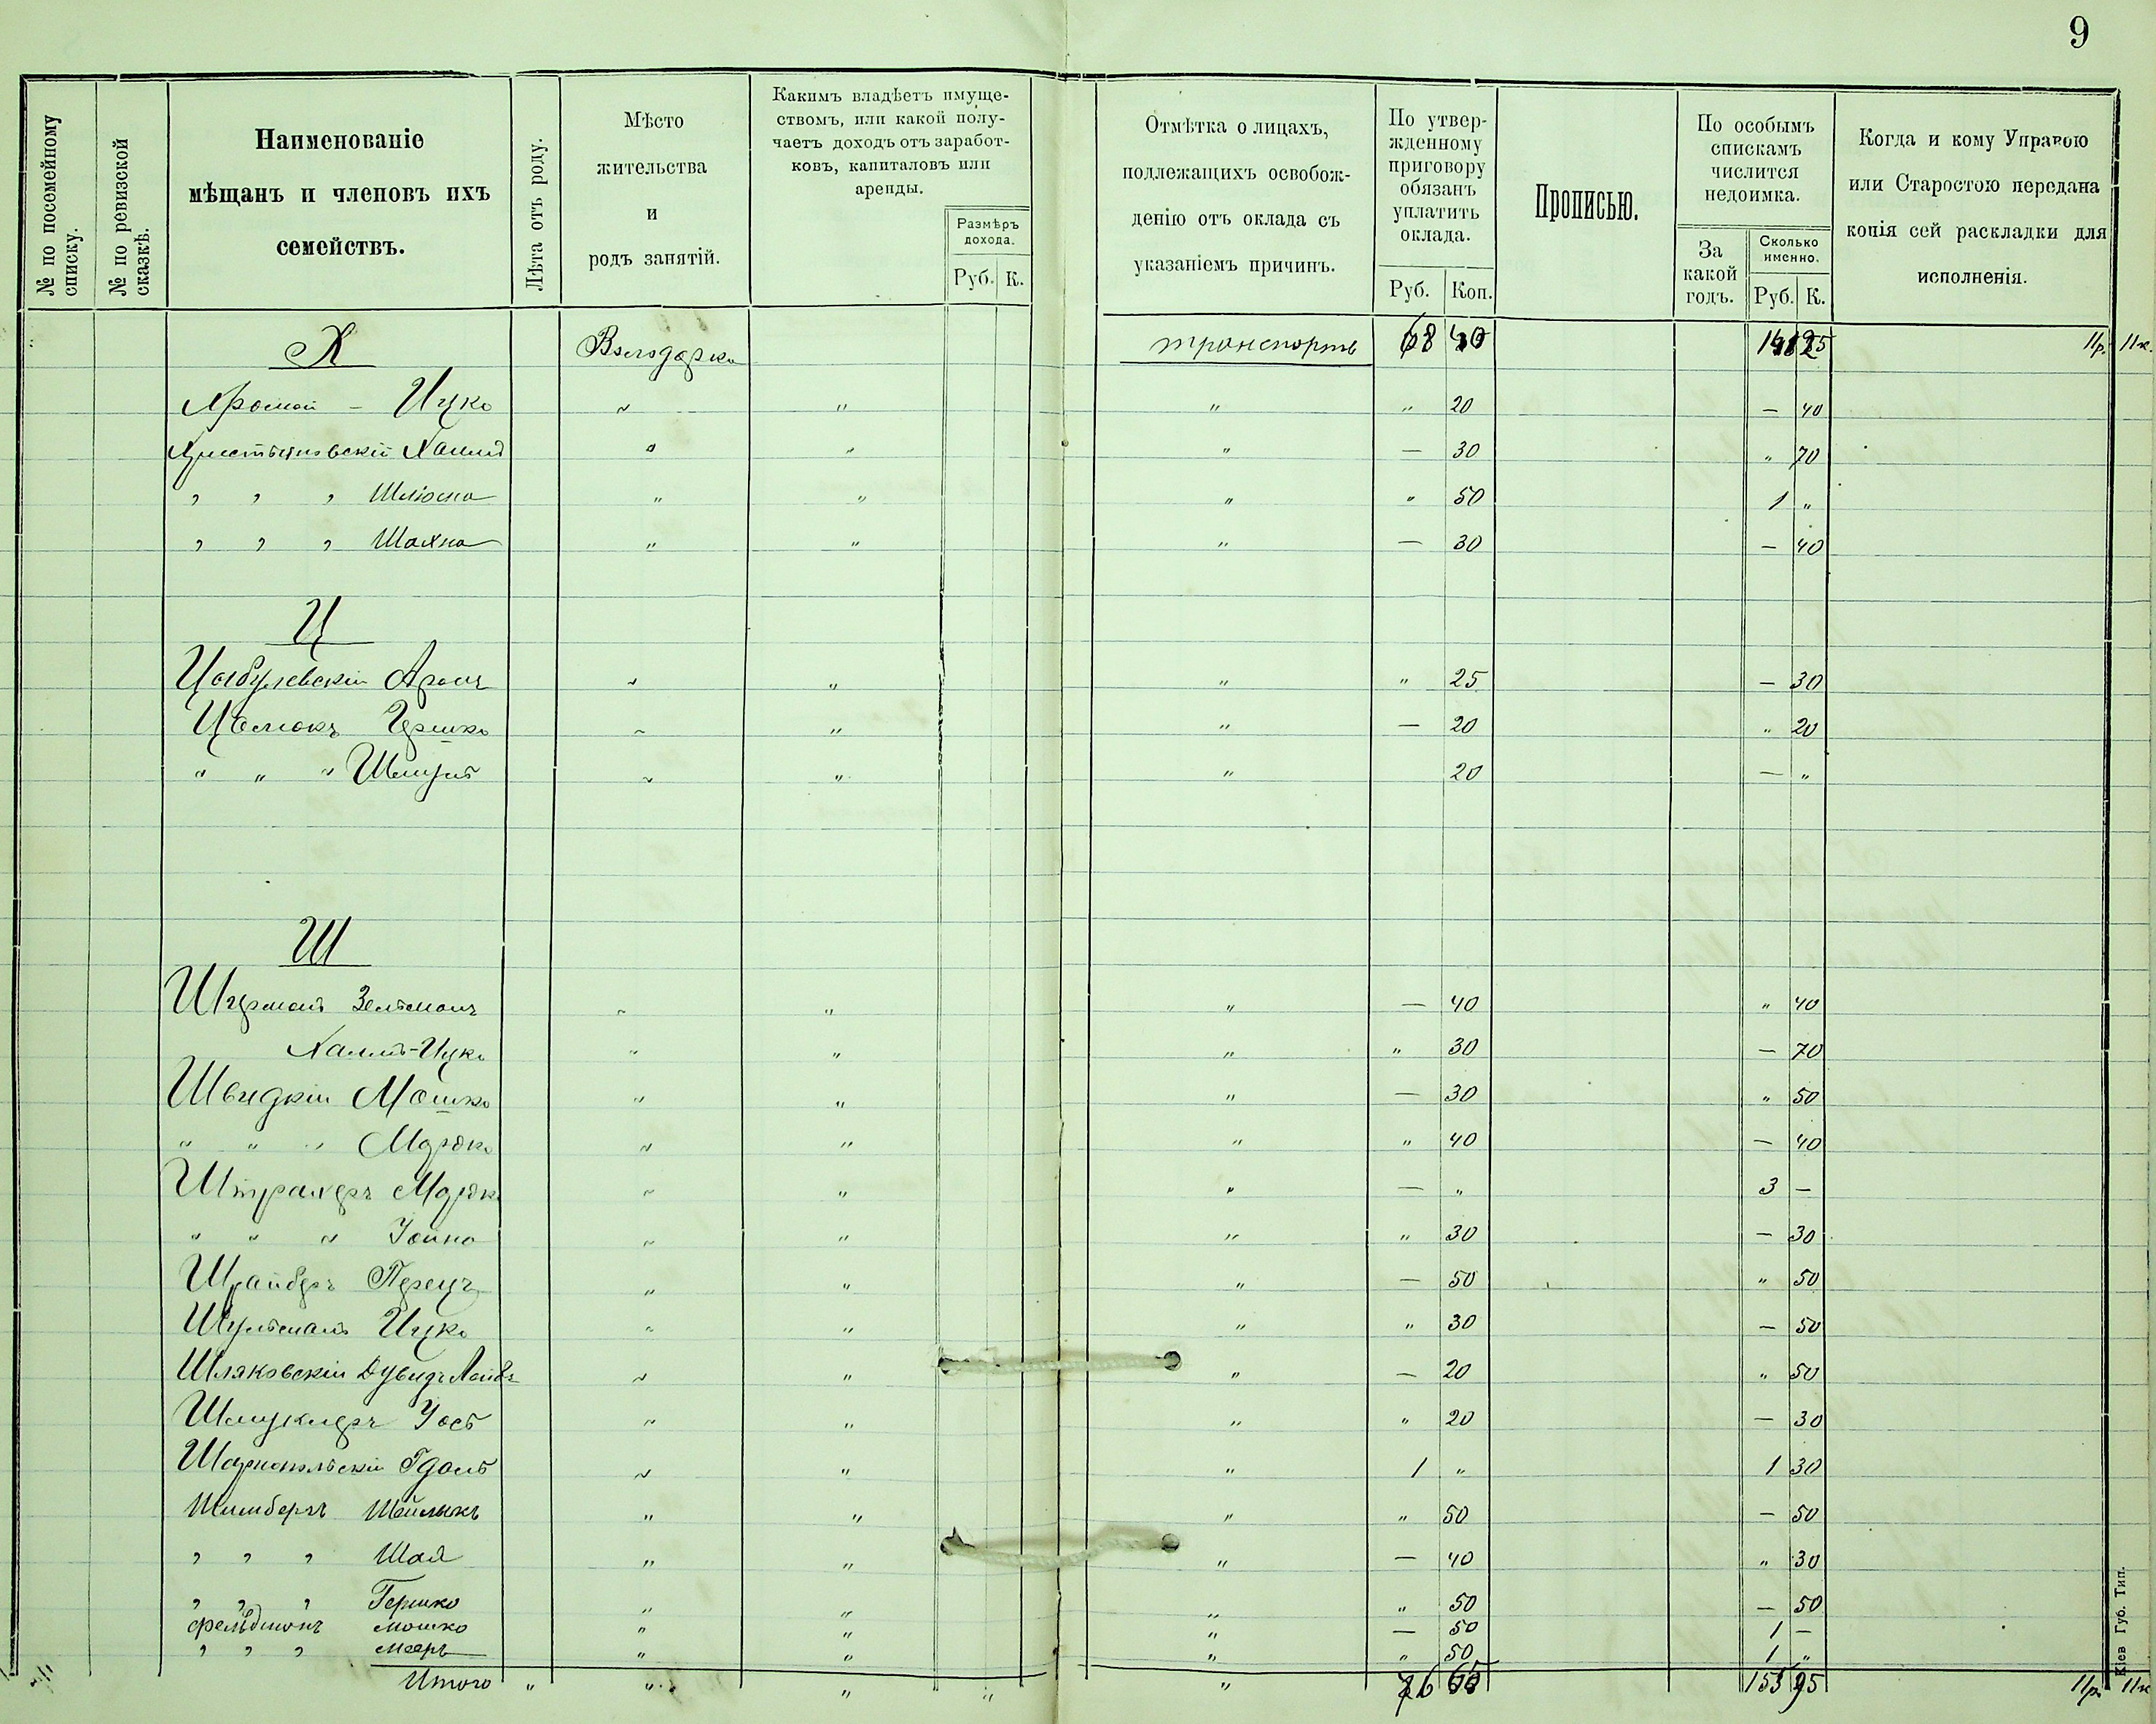 9
№ по посемейному списку.
№ по ревизской сказкѣ.
Наименованіе
мѣщанъ и членовъ ихъ
семействъ.
Лѣта отъ роду.
Мѣсто
жительства
и
родъ занятій.
Какимъ владѣетъ имуще-
ствомъ, или какой полу-
чаетъ доходъ отъ заработ-
ковъ, капиталовъ или
аренды.
Размѣръ
дохода.
Руб. К.
Отмѣтка о лицахъ,
подлежащихъ освобож-
денію отъ оклада съ
указаніемъ причинъ.
По утвер-
жденному
приговору
обязанъ
уплатить
оклада.
Руб. Коп.
Прописью.
По особымъ
спискамъ
числится
недоимка.
За
какой
годъ.
Сколько
именно.
Руб. К.
Когда и кому Управою
или Старостою передана
копія сей раскладки для
исполненія.
Х Володарка транспортъ 68 11р. 11к.
Хромой - Ицко " " " 20 — 40
Христыновскій Хаимъ " " " — 30 " 70
" " " Шліома " " " " 50 1 "
" " " Шахна " " " — 30 — 40
Ц
Цыбулевскій Аронъ " " " " 25 — 30
Гершко " " " — 20 " 20
" " " Шмуль " " " 20 — "
Ш
Зельманъ " " " — 40 " 40
Хаимъ-Ицко " " " " 30 — 70
Швидкій Мошко " " " — 30 " 50
" " " Мордко " " " " 40 — 40
Штрахеръ Мордко " " " — " 3 —
" " " Іойна " " " " 30 — 30
Шрайберъ Перецъ " " " — 50 " 50
Шульманъ Ицко " " " " 30 — 50
Шляковскій Дувидъ Лейбъ " " " — 20 " 50
Шмуклеръ Іось " " " " 20 — 30
Гдаль " " " 1 " 1 30
Шимберъ Шейлыкъ " " " " 50 — 50
" " " Шая " " " — 40 " 30
" " " Гершко " " " " 50 — 50
Фельдманъ Мошко " " " — 50 1 —
" " " Мееръ " " " " 50 1 "
Итого " " " " " 153 95 11р. 11к
Кіев Губ. Тип.